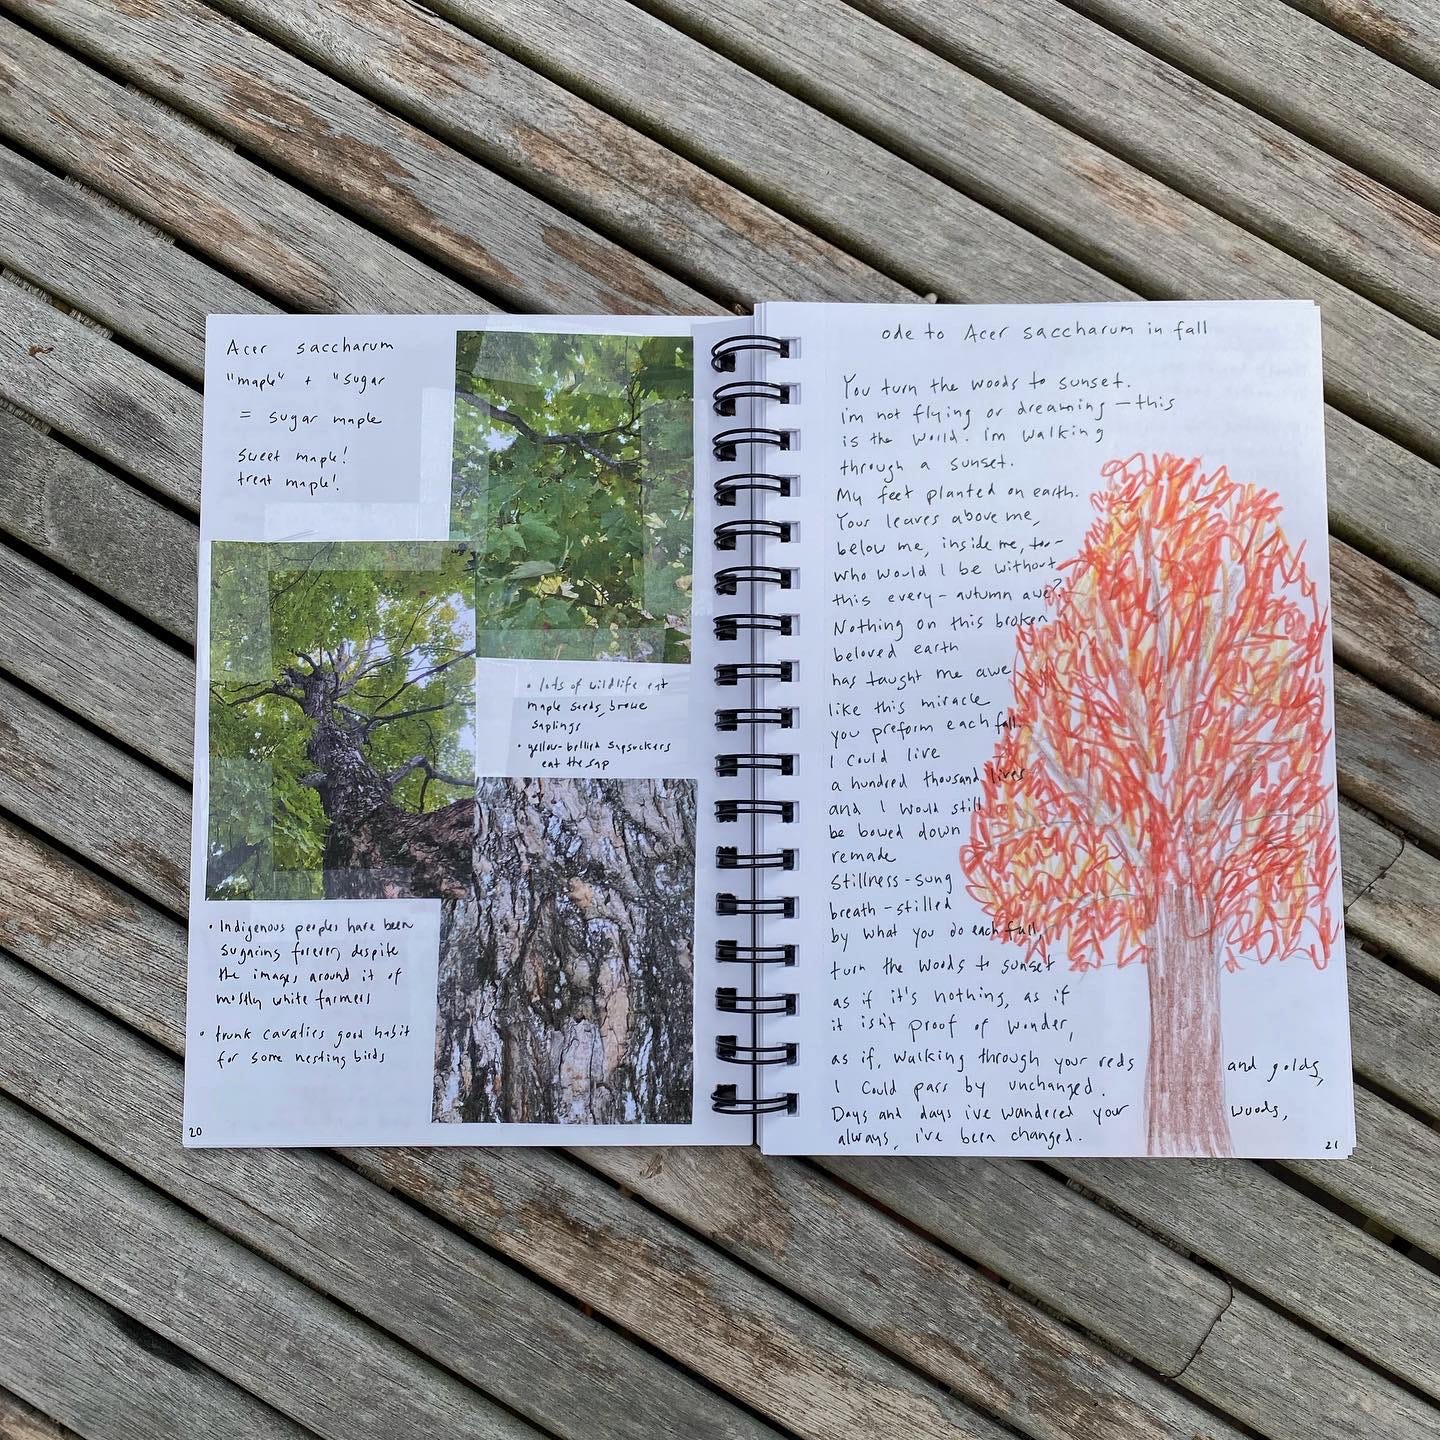 Acer saccharum
"maple" + "sugar
= sugar maple
sweet maple!
treat maple!
• lots of wildlife eat
maple seeds, browse
saplings
• yellow-bellied sapsuckers
eat the sap
• Indigenous peoples have been
sugaring forever, despite
the images around it of
mostly white farmers
• trunk cavaties good habit
for some nesting birds
20
ode to Acer saccharum in fall
You turn the woods to sunset.
i'm not flying or dreaming — this
is the world. i'm walking
through a sunset.
My feet planted on earth.
Your leaves above me,
below me, inside me, too —
who would I be without
this every-autumn awe?
Nothing on this broken
beloved earth
has taught me awe
like this miracle
you preform each fall.
I could live
a hundred thousand lives
and I would still
be bowed down
remade
stillness-sung
breath-stilled
by what you do each fall,
turn the woods to sunset
as if it's nothing, as if
it isn't proof of wonder,
as if, walking through your reds and golds,
I could pass by unchanged.
Days and days i've wandered your woods,
always, i've been changed.
21